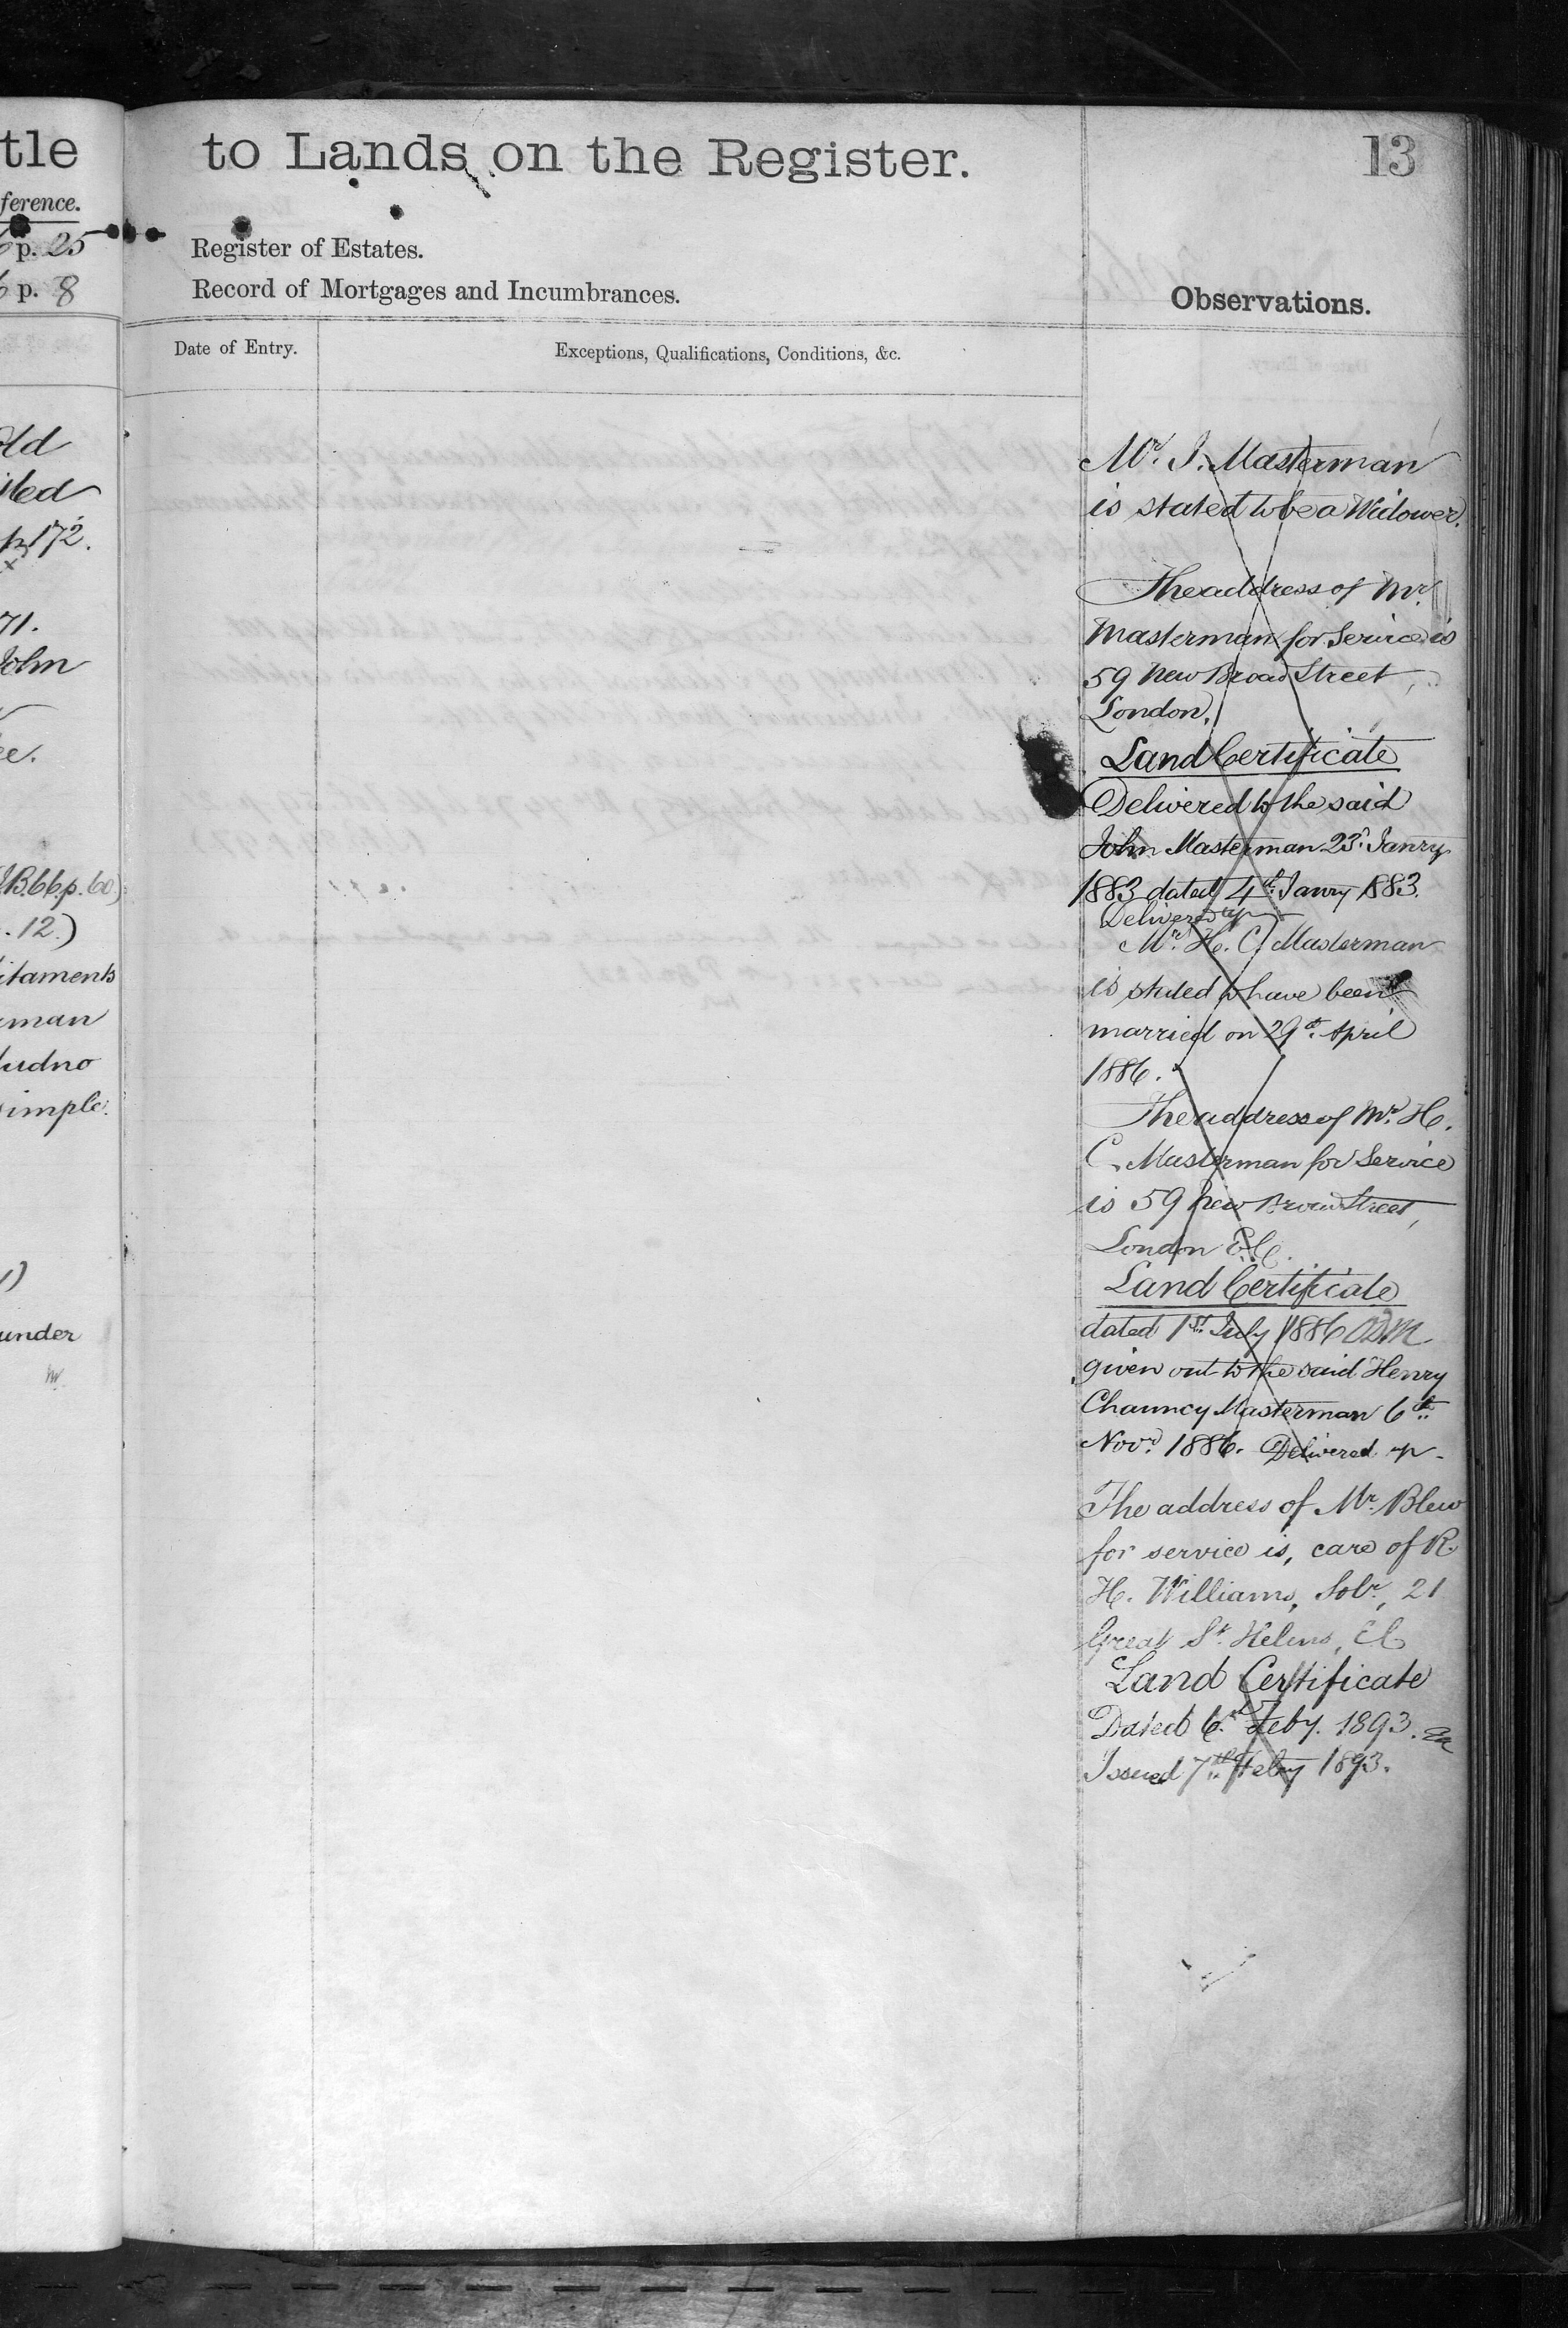 tle
ference.
p. 25
p. 8
old
p 172.
71.
John
ee.
B. 66. p. 60)
. 12.)
itaments
man
ludno
simple.
under
to Lands on the Register.
13
Register of Estates.
Record of Mortgages and Incumbrances.
Observations.
Date of Entry.
Exceptions, Qualifications, Conditions, &c.
Mr. J. Masterman
is stated to be a Widower.
The address of Mr.
Masterman for Service is
59 New Broad Street,
London.
Land Certificate
Delivered to the said
John Masterman 23rd Janry
1883 dated 4th Janry 1883.
Delivered up
Mr. H. C. Masterman
is stated to have been
married on 29th April
1886.
The address of Mr. H.
C. Masterman for Service
is 59 New Broad Street,
London E.C.
Land Certificate
dated 1st July 1886
given out to the said Henry
Chauncy Masterman 6th
Novr. 1886. Delivered up.
The address of Mr. Blew
for service is, care of R.
H. Williams, Solr., 21
Great St. Helens, EC
Land Certificate
Dated 6th Feby. 1893.
Issued 7th Feby 1893.